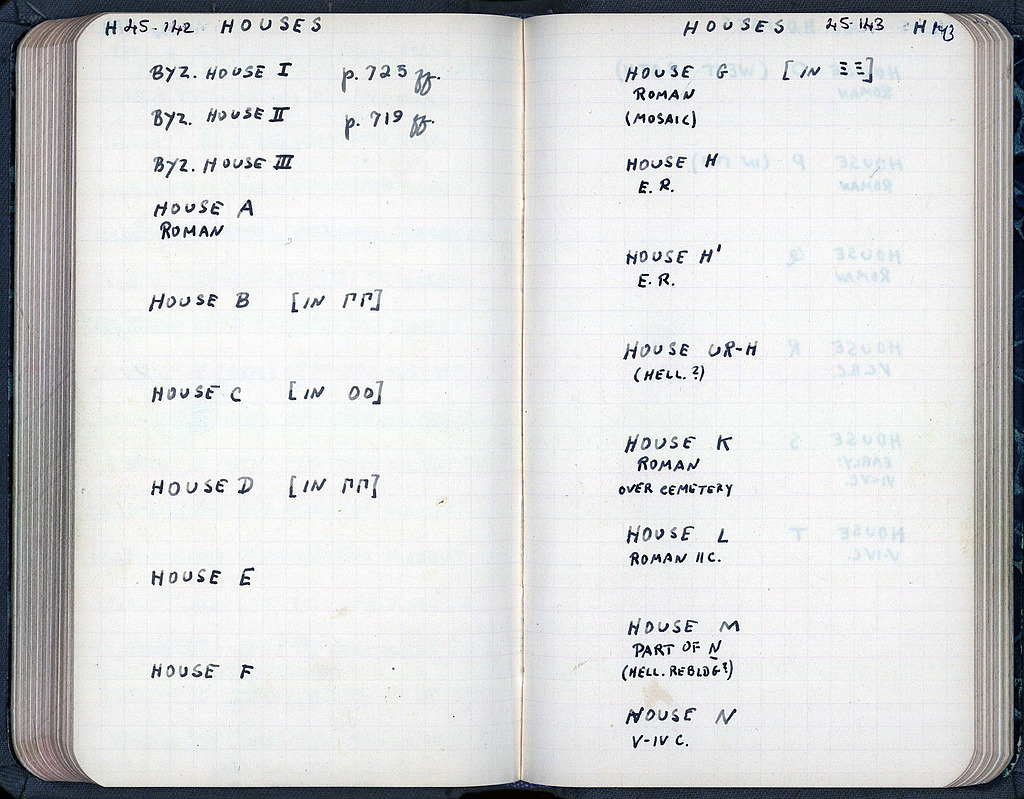 H 45-142 HOUSES
BYZ. HOUSE I p. 725 ff.
BYZ. HOUSE II p. 719 ff.
BYZ. HOUSE III
HOUSE A
ROMAN
HOUSE B [IN ΓΓ]
HOUSE C [IN OO]
HOUSE D [IN ΠΠ]
HOUSE E
HOUSE F
HOUSES 45-143 H 143
HOUSE G [IN ΞΞ]
ROMAN
(MOSAIC)
HOUSE H
E. R.
HOUSE H'
E. R.
HOUSE UR-H
(HELL. ?)
HOUSE K
ROMAN
OVER CEMETERY
HOUSE L
ROMAN II C.
HOUSE M
PART OF N
(HELL. REBLDG?)
HOUSE N
V-IV C.